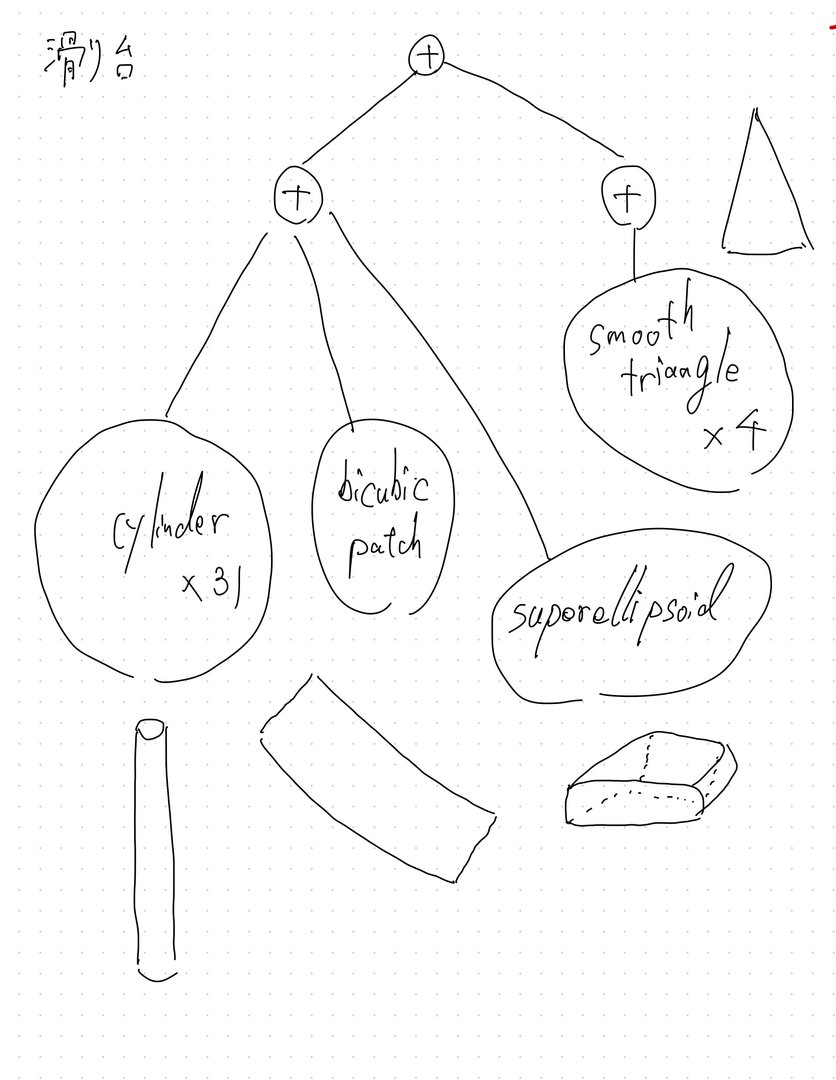 滑り台
+
+
+
smooth
triangle
×4
cylinder
×31
bicubic
patch
superellipsoid